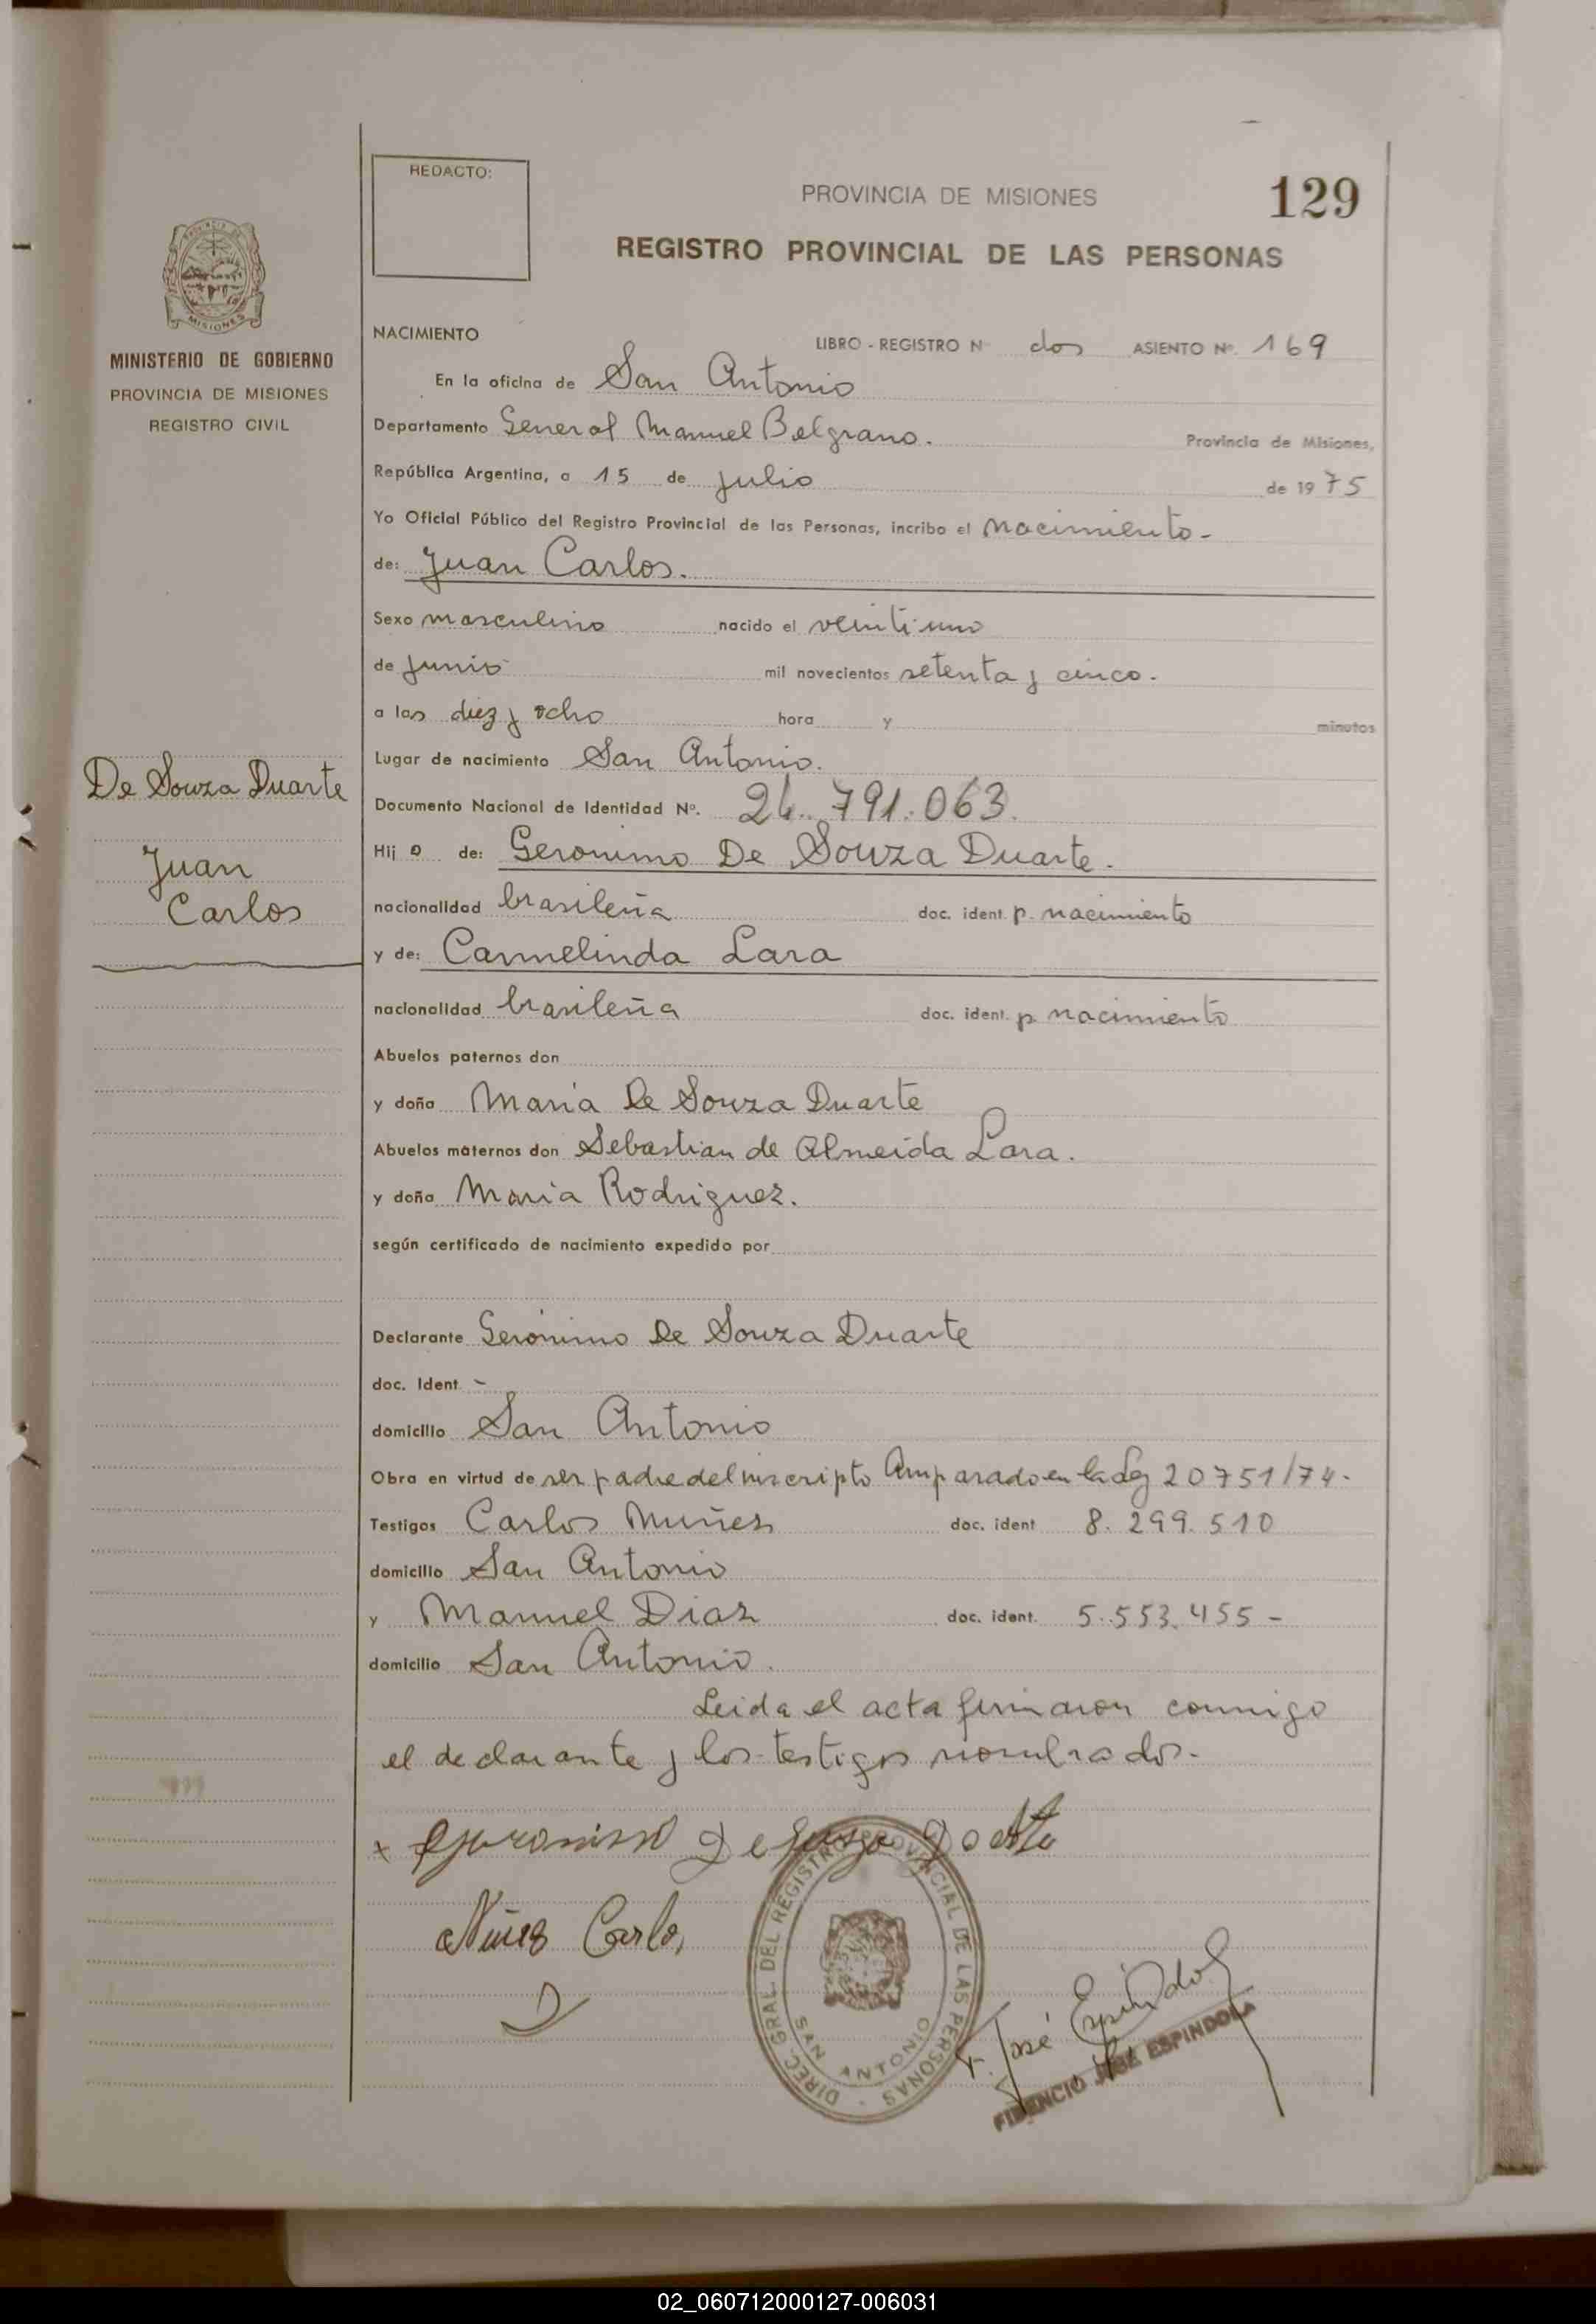 REDACTO:
PROVINCIA DE MISIONES
129
REGISTRO PROVINCIAL DE LAS PERSONAS
MISIONES
MINISTERIO DE GOBIERNO
PROVINCIA DE MISIONES
REGISTRO CIVIL
NACIMIENTO
LIBRO - REGISTRO N dos ASIENTO Nº. 169
En la oficina de San Antonio
Departamento General Manuel Belgrano. Provincia de Misiones,
República Argentina, a 15 de julio de 1975
Yo Oficial Público del Registro Provincial de las Personas, incribo el nacimiento-
de: Juan Carlos.
Sexo masculino nacido el veinti uno
de junio mil novecientos setenta y cinco.
a las diez y ocho hora y minutos
Lugar de nacimiento San Antonio.
De Souza Duarte
Juan
Carlos
Documento Nacional de Identidad Nº. 24.791.063.
Hijo de: Geronimo De Souza Duarte.
nacionalidad brasileña doc. ident. p. nacimiento
y de: Carmelinda Lara
nacionalidad brasileña doc. ident. p nacimiento
Abuelos paternos don
y doña Maria De Souza Duarte
Abuelos maternos don Sebastian de Almeida Lara.
y doña Maria Rodriguez.
según certificado de nacimiento expedido por
Declarante Gerónimo De Souza Duarte
doc. Ident -
domicilio San Antonio
Obra en virtud de ser padre del inscripto Amparado en la Ley 20751/74-
Testigos Carlos Muñez doc. ident 8.299.510
domicilio San Antonio
y Manuel Diaz doc. ident. 5.553.455-
domicilio San Antonio.
Leida el acta firmaron conmigo
el declarante y los testigos nombrados.-
Nuñes Carlo,
DIREC. GRAL. DEL REGISTRO PROVINCIAL DE LAS PERSONAS
SAN ANTONIO
F. José Espíndola
FIDENCIO JOSE ESPINDOLA
02_060712000127-006031